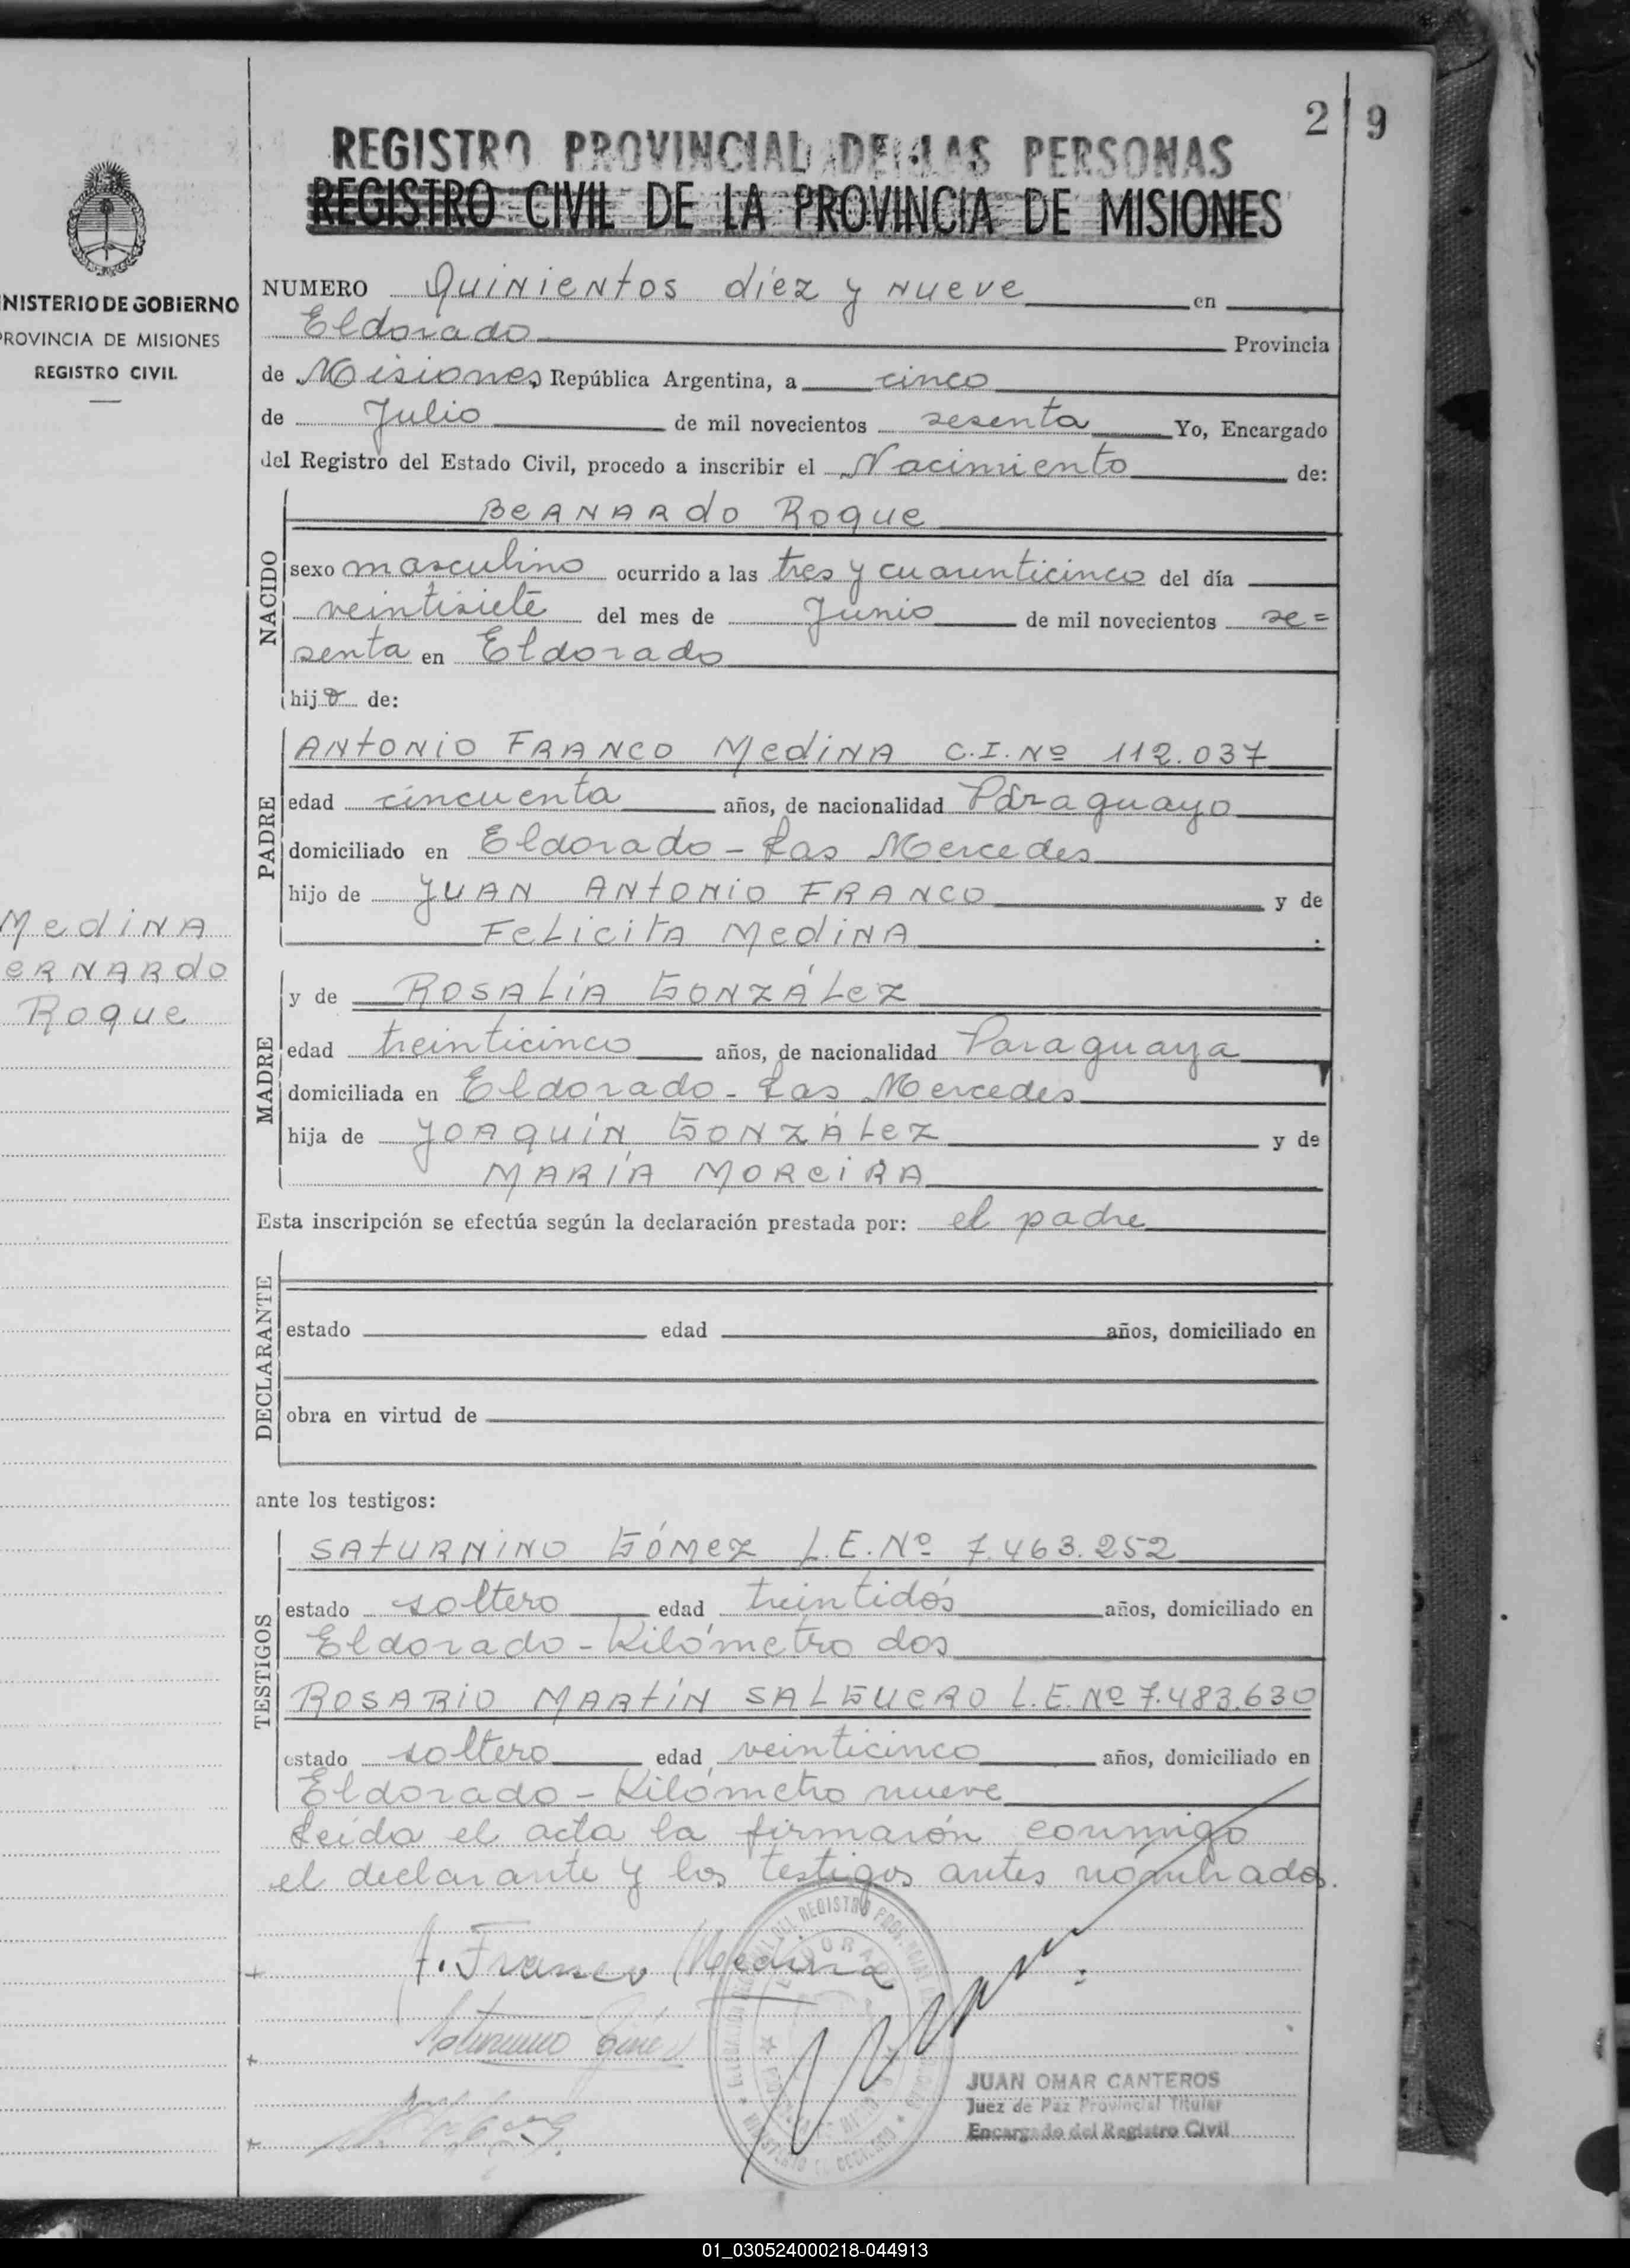 2 9
REGISTRO PROVINCIAL DE LAS PERSONAS
REGISTRO CIVIL DE LA PROVINCIA DE MISIONES
NISTERIO DE GOBIERNO
PROVINCIA DE MISIONES
REGISTRO CIVIL
Medina
ERNARdo
Roque
NUMERO Quinientos diez y nueve en
Eldorado Provincia
de Misiones República Argentina, a cinco
de Julio de mil novecientos sesenta Yo, Encargado
del Registro del Estado Civil, procedo a inscribir el Nacimiento de:
NACIDO
BERNARdo Roque
sexo masculino ocurrido a las tres y cuarenticinco del día
veintisiete del mes de Junio de mil novecientos se=
senta en Eldorado
hijo de:
PADRE
ANTONIO FRANCO MEDINA C.I. Nº 112.037
edad cincuenta años, de nacionalidad Paraguayo
domiciliado en Eldorado - Las Mercedes
hijo de JUAN ANTONIO FRANCO y de
FELICITA MEDINA
MADRE
y de ROSALÍA GONZÁLEZ
edad treinticinco años, de nacionalidad Paraguaya
domiciliada en Eldorado - Las Mercedes
hija de JOAQUÍN GONZÁLEZ y de
MARÍA MOREIRA
Esta inscripción se efectúa según la declaración prestada por: el padre
DECLARANTE
estado edad años, domiciliado en
obra en virtud de
ante los testigos:
TESTIGOS
SATURNINO GÓMEZ L.E. Nº 7.463.252
estado soltero edad treintidós años, domiciliado en
Eldorado - Kilómetro dos
ROSARIO MARTÍN SALGUERO L.E. Nº 7.483.630
estado soltero edad veinticinco años, domiciliado en
Eldorado - Kilómetro nueve
Leída el acta la firmarón conmigo
el declarante y los testigos antes nómbrados.
A. Franco Medina
Saturnino Gómez
JUAN OMAR CANTEROS
Juez de Paz Provincial Titular
Encargado del Registro Civil
01_030524000218-044913